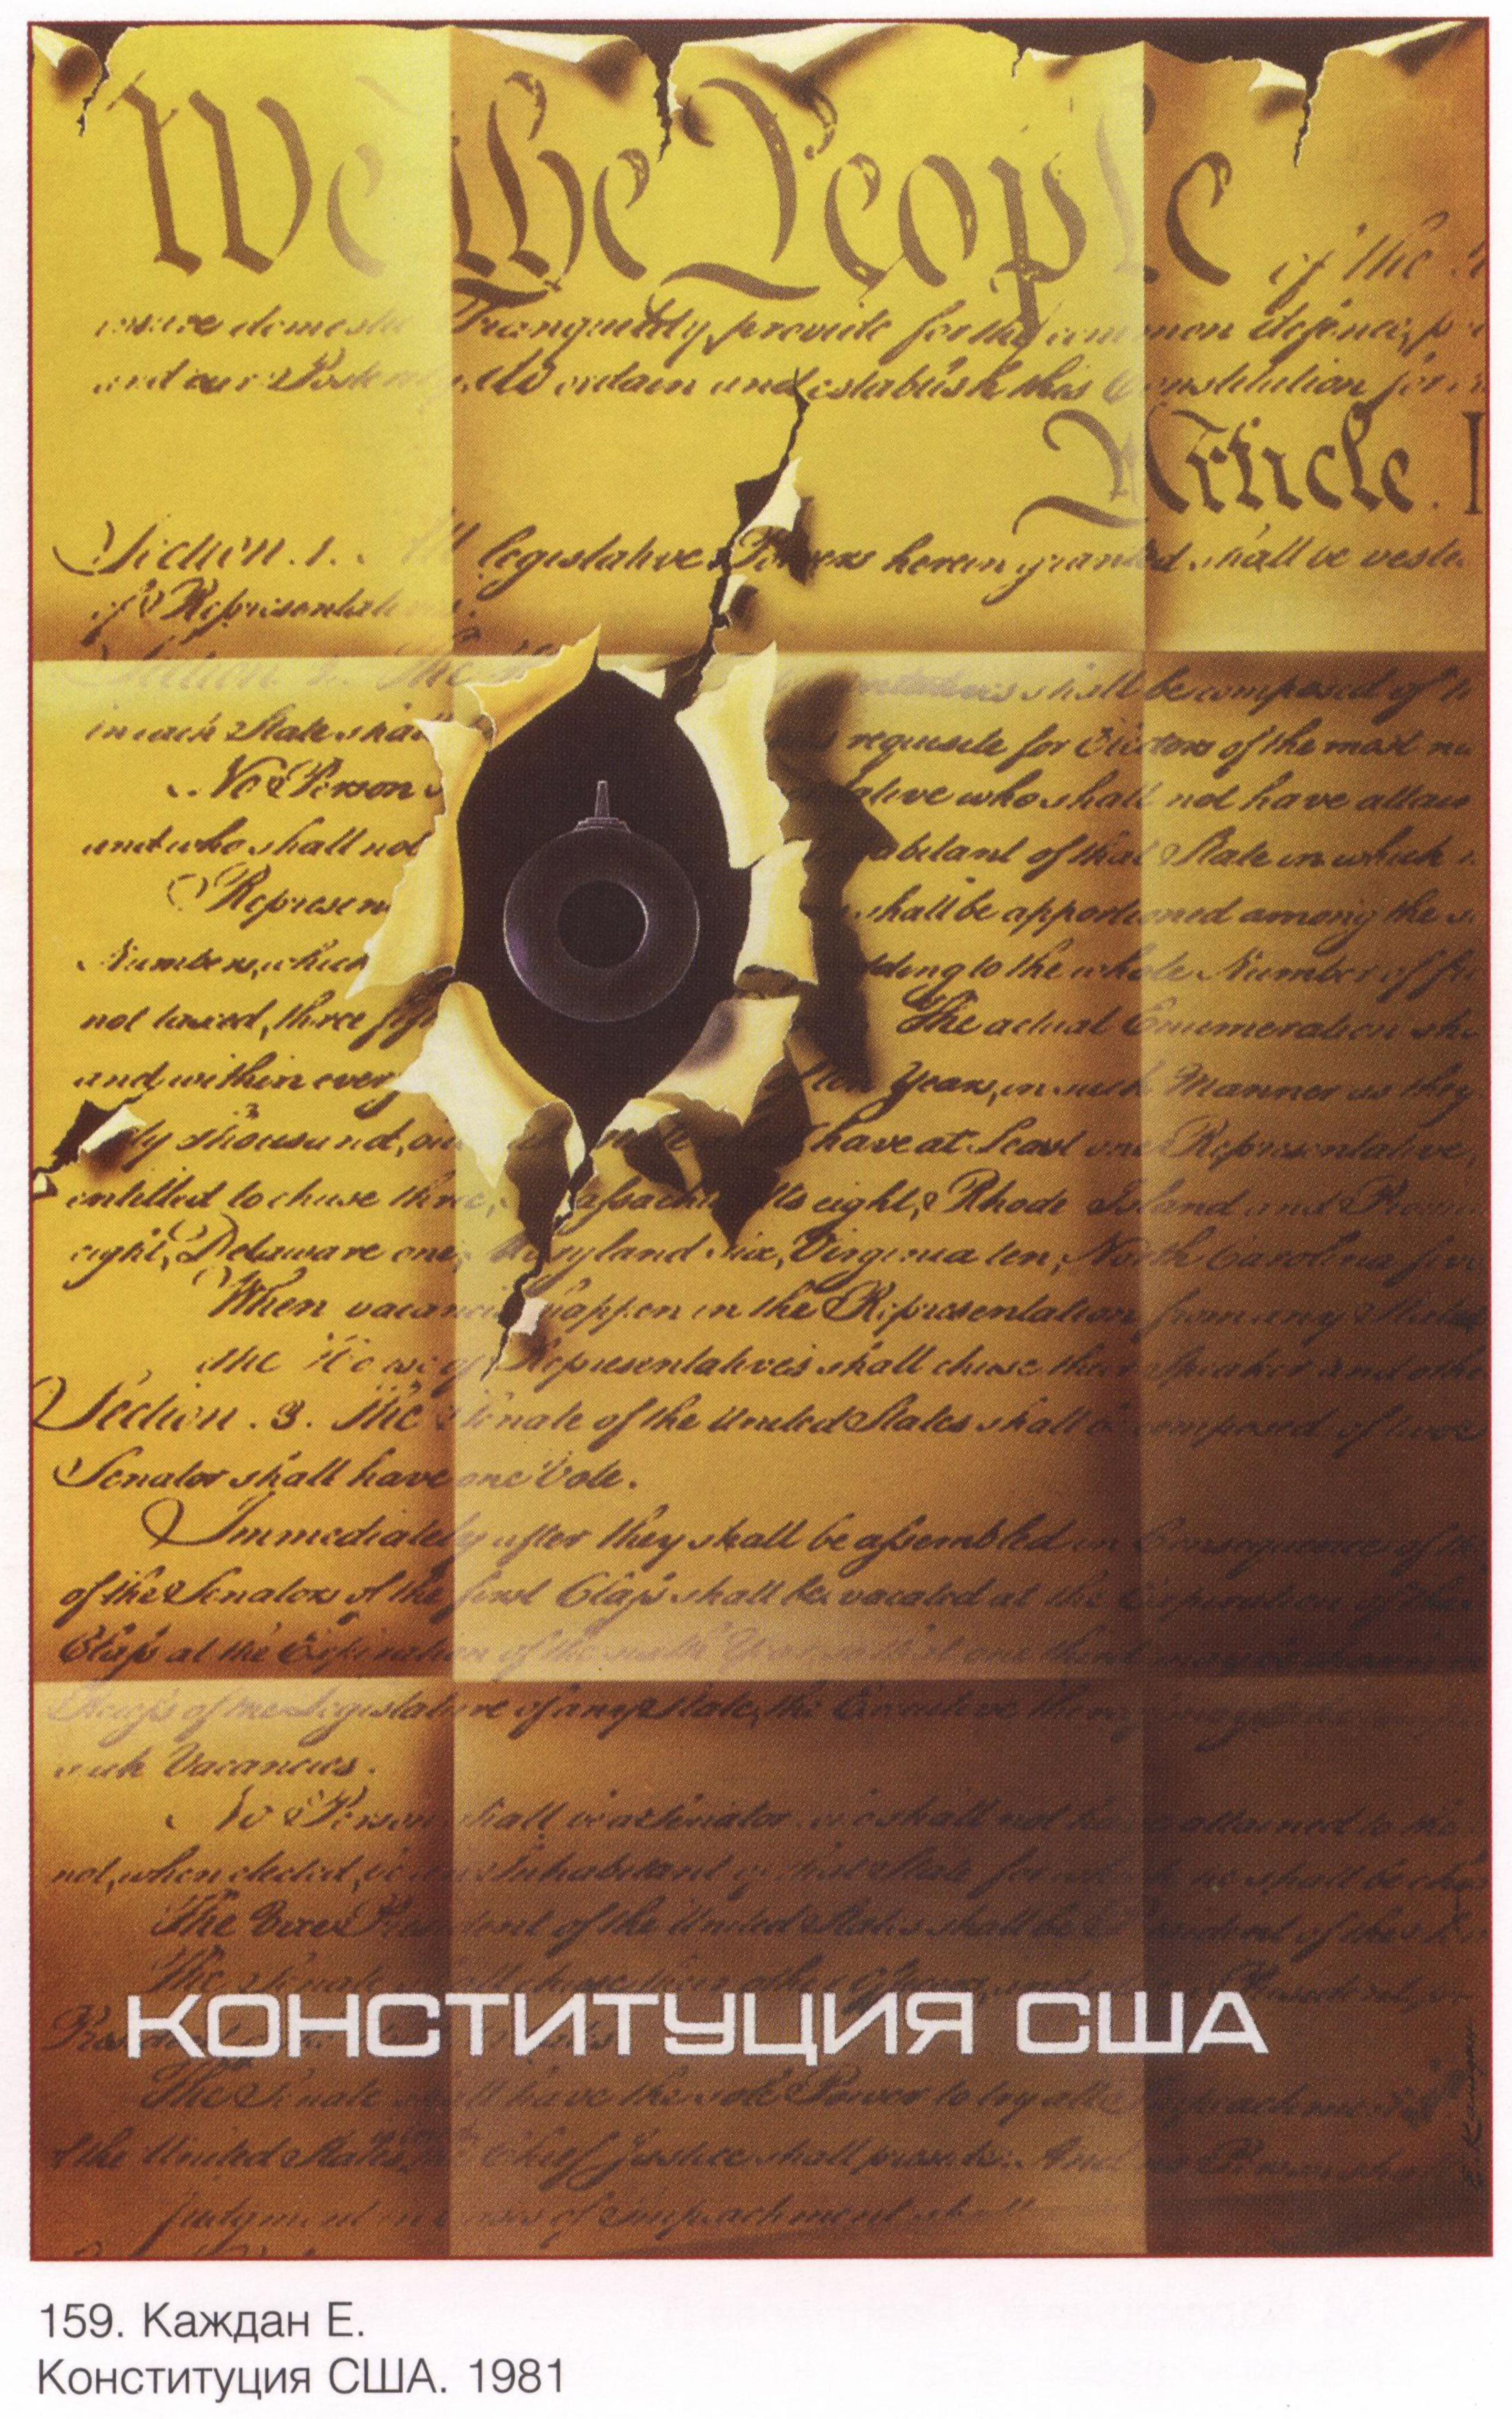 We the People of the
insure domestic Tranquility, provide for the common defence, p
and our Posterity, do ordain and establish this Constitution for
Article. I
Section. 1. All legislative Powers herein granted shall be veste
of Representatives.
Section 2. The shall be composed of
in each State shall requisite for Electors of the most nu
No Person who shall not have attain
and who shall not of that State in which
Represen shall be apportioned among the
Numbers, which to the whole Number of fr
not taxed, three fift The actual Enumeration sha
and within every of ten Years, in such Manner as they
ty thousand, but have at Least one Representative,
entitled to chuse three, Massachusetts eight, Rhode Island and Provi
eight, Delaware one, Maryland six, Virginia ten, North Carolina five
When vacancies happen in the Representation from any State
the House of Representatives shall chuse their Speaker and othe
Section. 3. The Senate of the United States shall be composed of two
Senator shall have one Vote.
Immediately after they shall be assembled in Consequence of th
of the Senators of the first Class shall be vacated at the Expiration of the
Class at the Expiration of the sixth Year, so that one third may be chosen
Recess of the Legislature of any State, the Executive thereof may make
such Vacancies.
No Person shall be a Senator who shall not have attained to the
not, when elected, be an Inhabitant of that State for which he shall be cho
The Vice President of the United States shall be President of the
The Senate shall chuse their other Officers, and
КОНСТИТУЦИЯ США
The Senate shall have the sole Power to try all Impeachments
of the United States, the Chief Justice shall preside: And no Person sha
Judgment in Cases of Impeachment shall
Е. Каждан
159. Каждан Е.
Конституция США. 1981